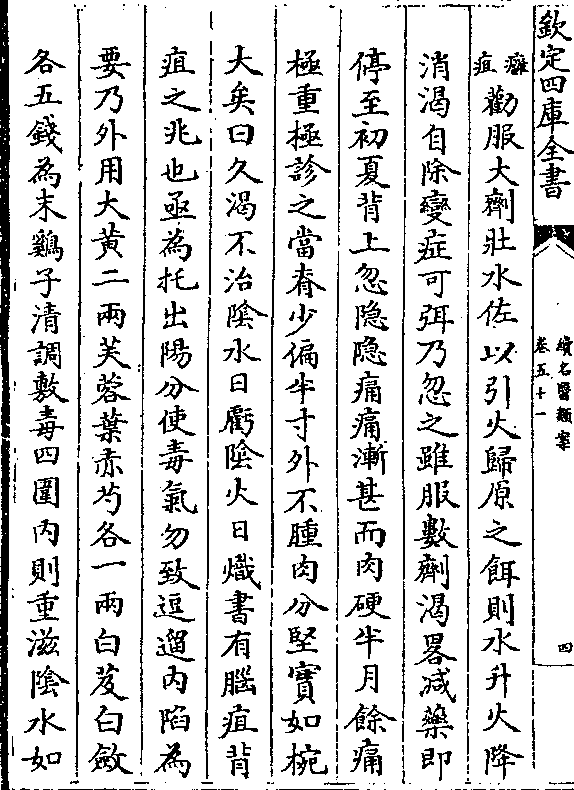 欽定四庫全書
續名醫類案
卷五十一
四
癰疽勸服大劑壯水佐以引火歸原之餌則水升火降
消渴自除變症可弭乃忽之雖服數劑渴畧減藥即
停至初夏背上忽隐隐痛痛漸甚而肉硬半月餘痛
極重極診之當脊少偏半寸外不腫肉分堅實如椀
大矣曰久渴不治陰水日虧陰火日熾書有腦疽背
疽之兆也亟為托出陽分使毒氣勿致逗遛内陷為
要乃外用大黄二兩芙蓉葉赤芍各一兩白芨白斂
各五錢為末鷄子清調敷毒四圍内則重滋陰水如